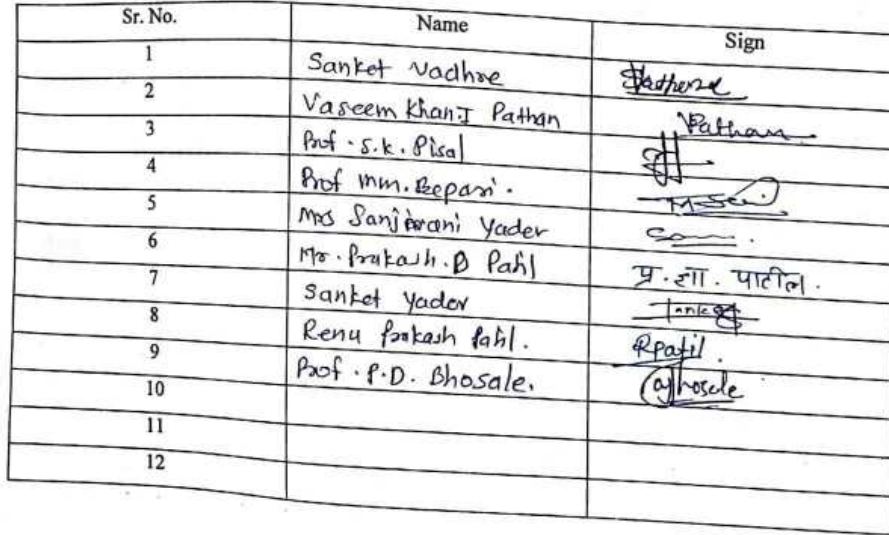 Sr. No. Name Sign
1 Sanket Vadhre
2 Vaseem Khan.I Pathan Pathan
3 Prof. S.k. Pisal
4 Prof mm. Bepari.
5 Mrs Sanjivani Yadev
6 Mr. Prakash. D Patil प्र. ज्ञा. पाटील.
7 Sanket Yadav
8 Renu Prakash Patil. RPatil.
9 Prof. P.D. Bhosale. Bhosale
10
11
12